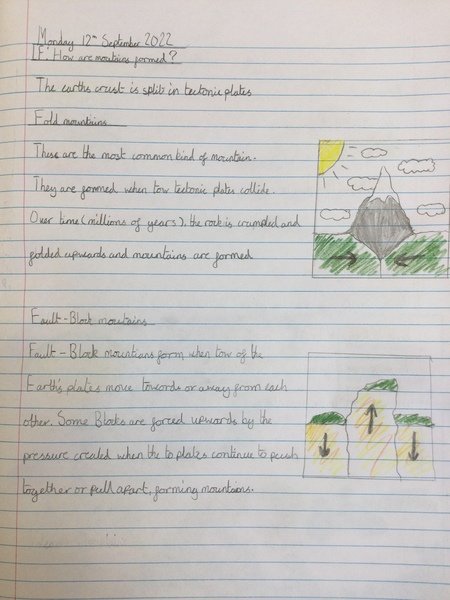 Monday 12th September 2022
LF: How are moutains formed?
The earths crust is split in tectonic plates
Fold mountains
These are the most common kind of mountain.
They are formed when tow tectonic plates collide.
Over time (millions of years), the rock is crumpled and
folded upwards and mountains are formed
Fault-Block mountains
Fault - Block mountians form when tow of the
Earth's plates move towards or away from each
other. Some Blocks are forced upwards by the
pressure created when the to plates continue to push
together or pull apart, forming mountains.